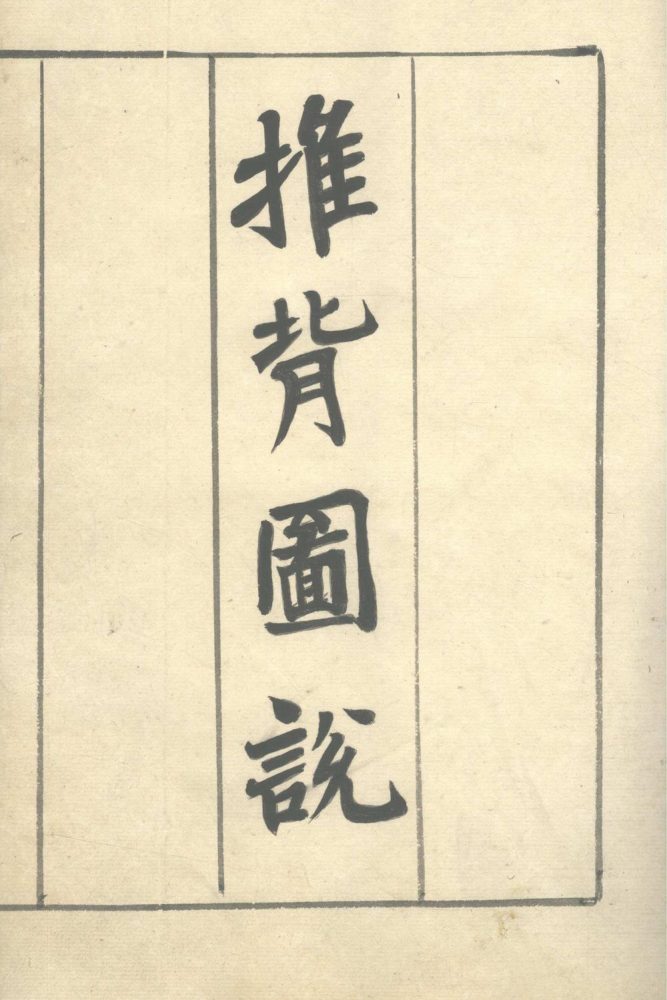 推背圖說